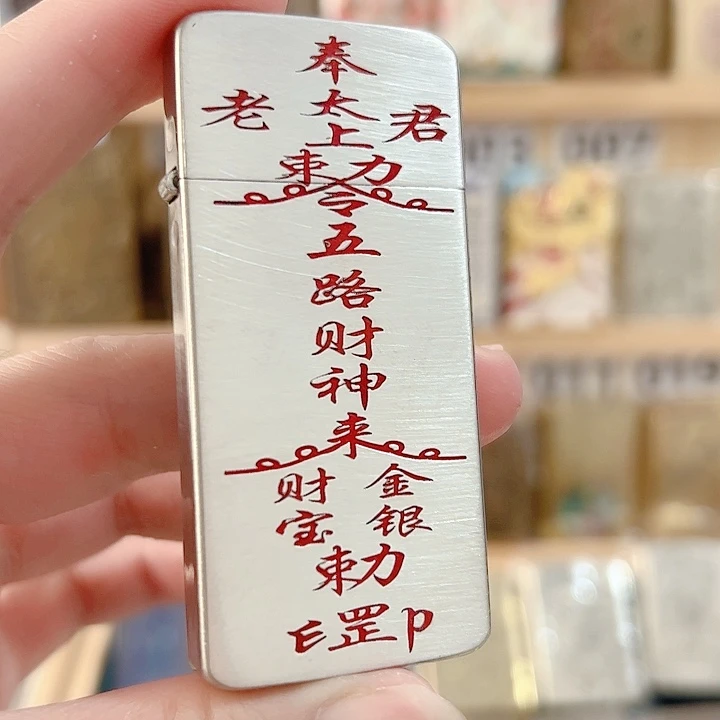 奉
太
老 上 君
勅令
五
路
财
神
来
财 金
宝 银
勅
罡